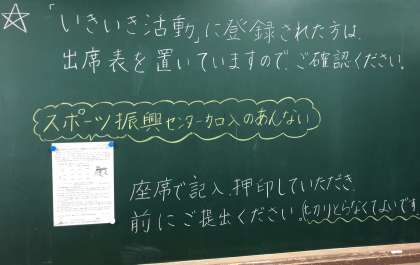 ☆「いきいき活動」に登録された方は、
出席表を置いていますので、ご確認ください。
スポーツ振興センター加入のあんない
座席で記入、押印していただき、
前にご提出ください。(切りとらなくてよいです